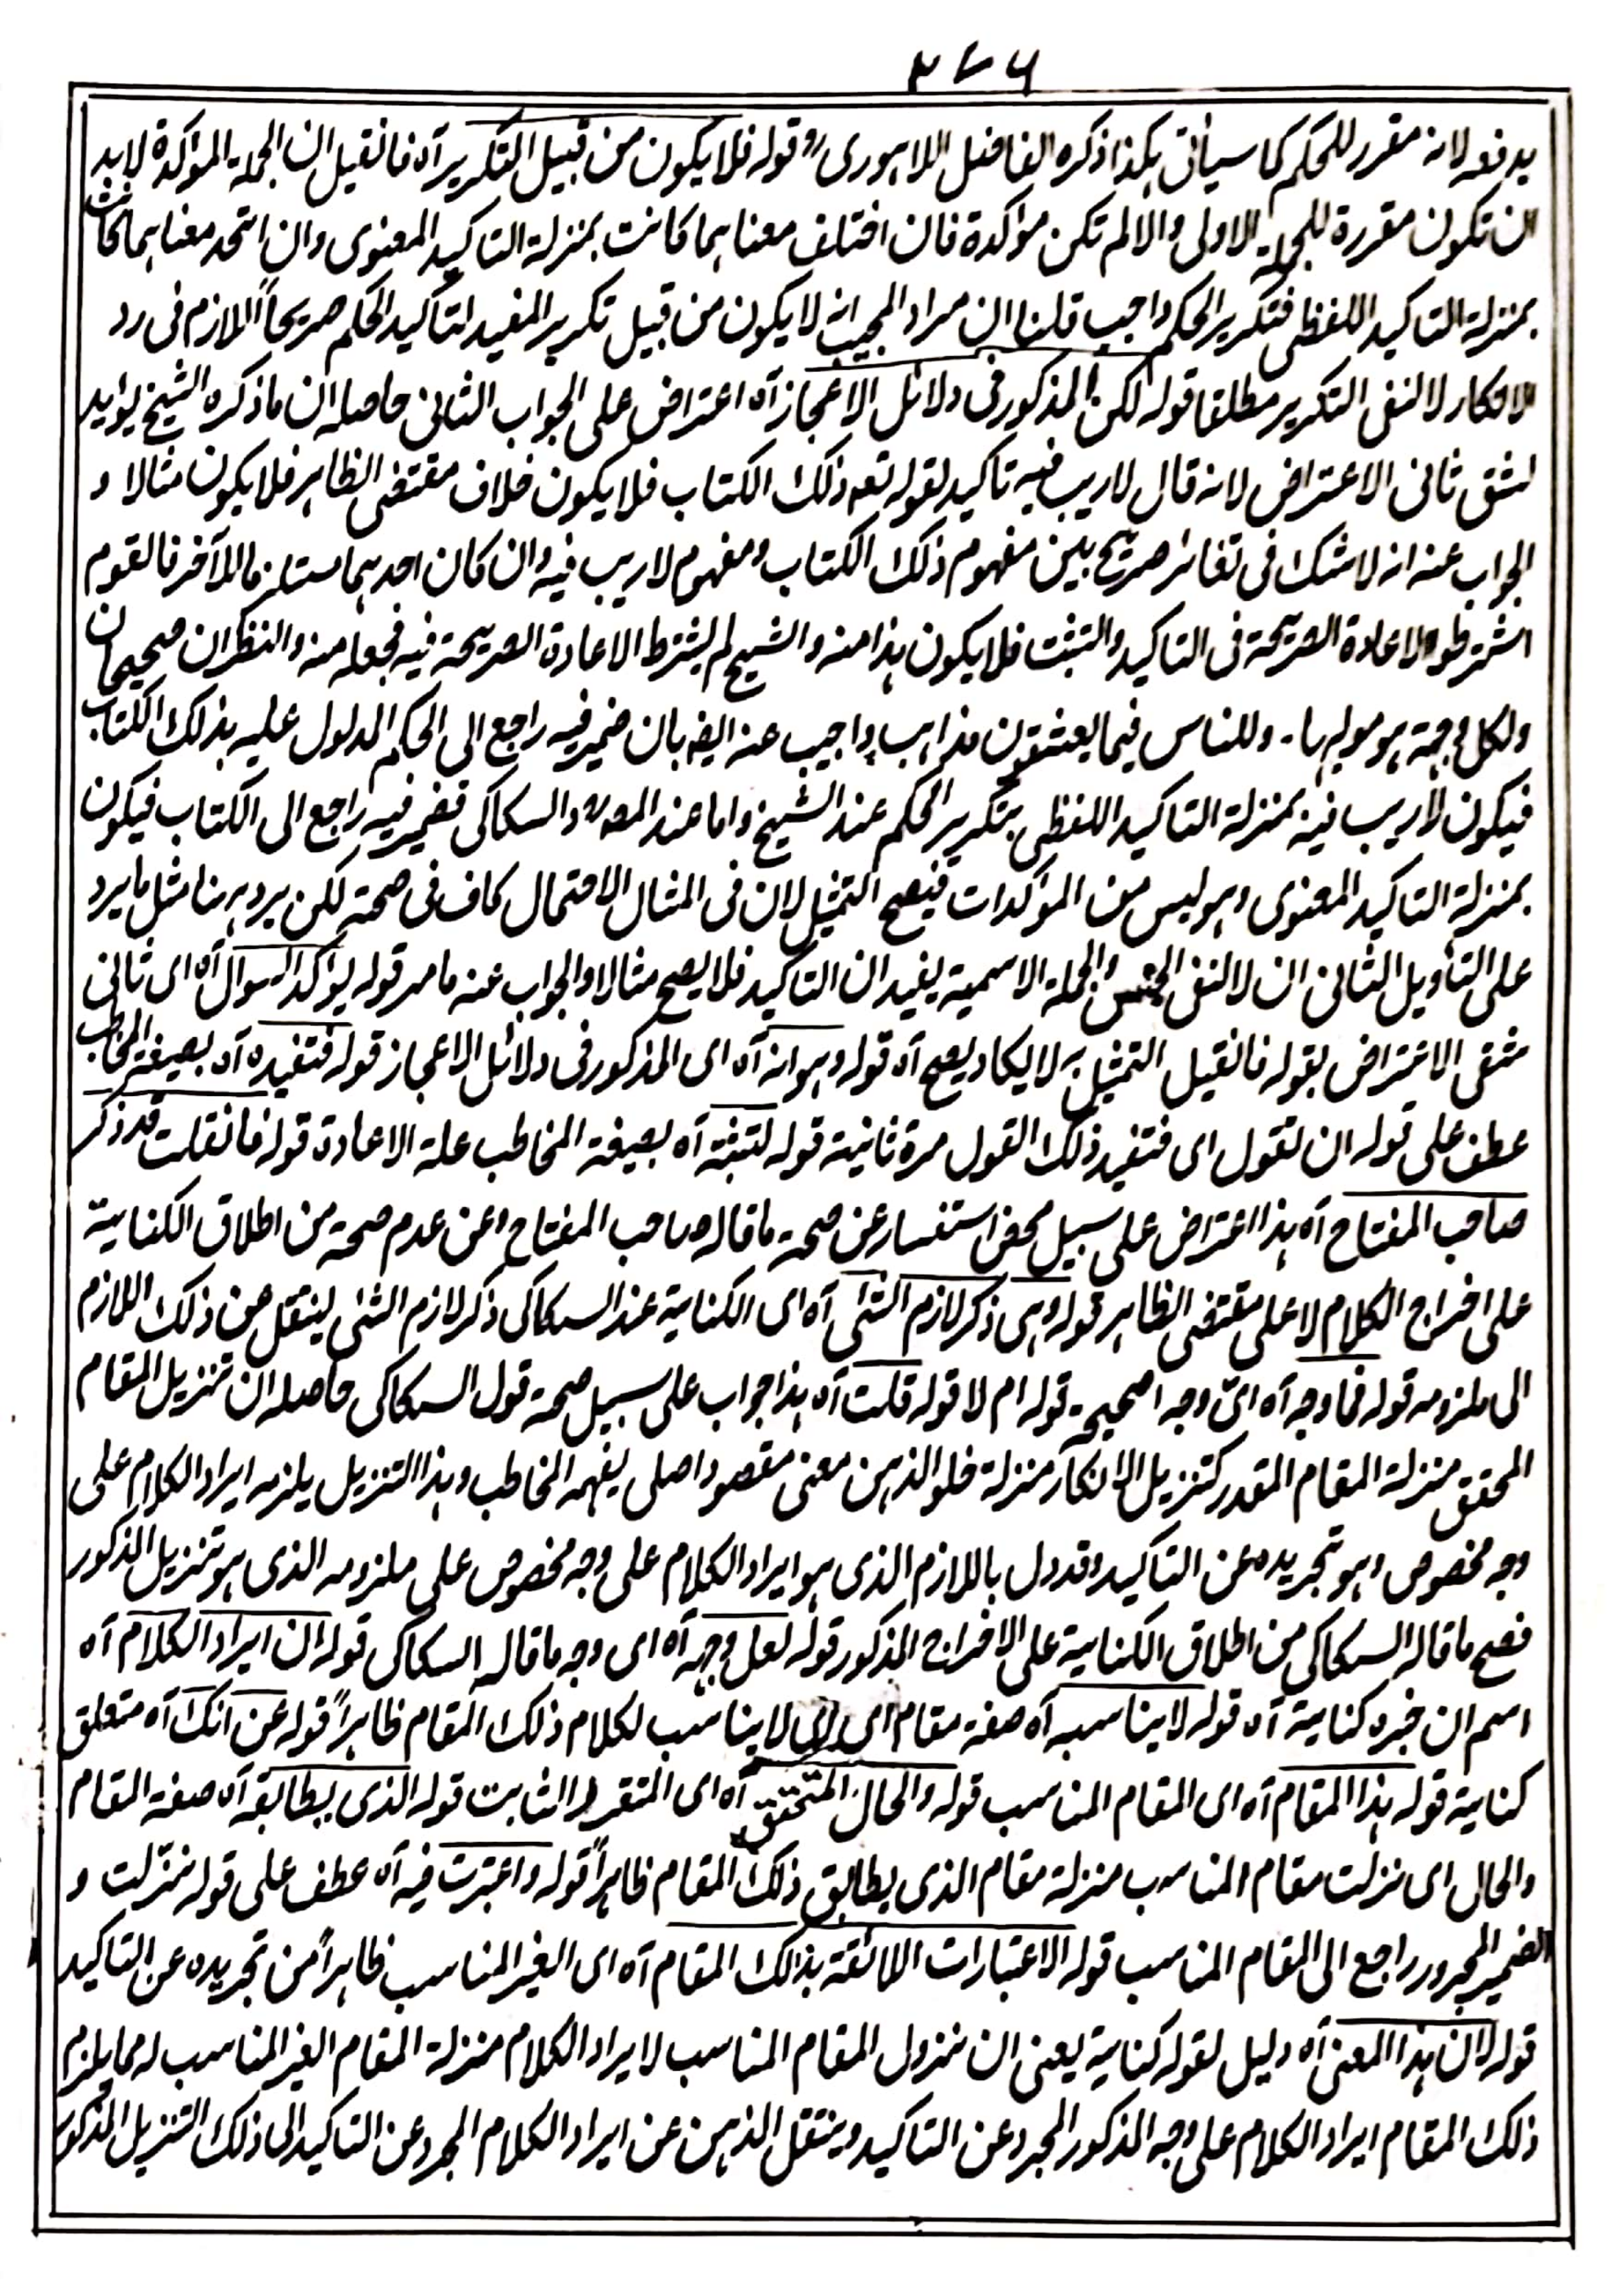 ٣٧٦
يدفعه لانه مقرر للحكم كما سيأتى هكذا ذكره الفاضل اللاهورى قوله فلا يكون من قبيل التكرير آه فانقيل ان الجملة المؤكدة لابد
ان تكون مقررة للجملة الاولى والا لم تكن مؤكدة فان اختلف معناهما كانت بمنزلة التاكيد المعنوى وان اتحد معناهما كانت
بمنزلة التاكيد اللفظى فتكرير الحكم واجب قلنا ان مراد المجيب انه لا يكون من قبيل تكرير المفيد لتأكيد الحكم صريحاً اللازم فى رد
الانكار لا لنفى التكرير مطلقا قوله لكن المذكور فى دلائل الاعجاز آه اعتراض على الجواب الثانى حاصله ان ما ذكره الشيخ يوايد
لشق ثانى الاعتراض لانه قال لاريب فيه تاكيد لقوله تعه ذلك الكتاب فلا يكون خلاف مقتضى الظاهر فلا يكون مثالا و
الجواب عنه انه لا شك فى تغائر صريح بين مفهوم ذلك الكتاب ومفهوم لاريب فيه وان كان احدهما مستلزما للآخر فالقوم
اشترطوا الاعادة الصريحة فى التاكيد والتثبت فلا يكون هذا منه والشيخ لم يشترط الاعادة الصريحة فيه فجعله منه والنظران صحيحان
ولكل وجهة هو موليها۔ وللناس فيما يعشقون مذاهب واجيب عنه ايضه بان ضمير فيه راجع الى الحكم المدلول عليه بذلك الكتاب
فيكون لاريب فيه بمنزلة التاكيد اللفظى بتكرير الحكم عند الشيخ واما عند المصه والسكاكى فضمير فيه راجع الى الكتاب فيكون
بمنزلة التاكيد المعنوى وهو ليس من المؤكدات فيصح التمثيل لان فى المثال الاحتمال كاف فى صحته لكن يرد هرنا مثل ما يرد
على التأويل الثانى ان لا لنفى الجنس والجملة الاسمية يفيدان التاكيد فلا يصح مثالا والجواب عنه ما مر قوله يواكد السوال آه اى ثانى
شقى الاعتراض بقوله فانقيل التمثيل به لا يكاد يصح آه قوله وهو انه آه اى المذكور فى دلائل الاعجاز قوله فتفيده آه بصيغة المخاطب
عطف على قوله ان تقول اى فتفيد ذلك القول مرة ثانية قوله لتثبته آه بصيغة المخاطب علة الاعادة قوله فانقلت قد ذكر
صاحب المفتاح آه هذا اعتراض على سبيل محض استفسار عن صحة ما قاله صاحب المفتاح وعن عدم صحة من اطلاق الكناية
على اخراج الكلام لا على مقتضى الظاهر قوله وهى ذكر لازم الشئى آه اى الكناية عند السكاكى ذكر لازم الشئى لينتقل من ذلك اللازم
الى ملزومه قوله فما وجه آه اىّ وجه اصحيح۔ قوله ام لا قوله قلت آه هذا جواب على سبيل صحة قول السكاكى حاصله ان تنزيل المقام
المحقق منزلة المقام المقدر كتنزيل الانكار منزلة خلو الذهن معنى مقصود اصلى يفهمه المخاطب وهذا التنزيل يلزمه ايراد الكلام على
وجه مخصوص وهو تجريده عن التاكيد وقد دل باللازم الذى هو ايراد الكلام على وجه مخصوص على ملزومه الذى هو تنزيل المذكور
فصح ما قاله السكاكى من اطلاق الكناية على الاخراج المذكور قوله لعل وجهه آه اى وجه ما قاله السكاكى قوله ان ايراد الكلام آه
اسم ان خبره كناية آه قوله لا يناسبه آه صفة مقام اى لا يناسب لكلام ذلك المقام ظاهراً قوله عن انك آه متعلق
كناية قوله هذا المقام آه اى المقام المناسب قوله والحال المتحقق آه اى المتقرر الثابت قوله الذى يطابقه آه صفة المقام
والحال اى نزلت مقام المناسب منزلة مقام الذى يطابق ذلك المقام ظاهراً قوله واعتبرت فيه آه عطف على قوله نزّلت و
الضمير المجرور راجع الى المقام المناسب قوله الاعتبارات اللائقة بذالك المقام آه اى الغير المناسب ظاهراً من تجريده عن التاكيد
قوله لان هذا المعنى آه دليل لقوله كناية يعنى ان نزول المقام المناسب لايراد الكلام منزلة المقام الغير المناسب له مما يلزم
ذلك المقام ايراد الكلام على وجه المذكور المجرد عن التاكيد وينتقل الذهن عن ايراد الكلام المجرد عن التاكيد الى ذلك التنزيل المذكور